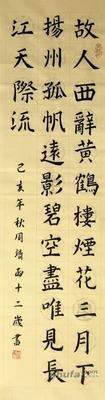 故人西辭黃鶴樓煙花三月下
揚州孤帆遠影碧空盡唯見長
江天際流
己亥年秋周靖函十二歲書